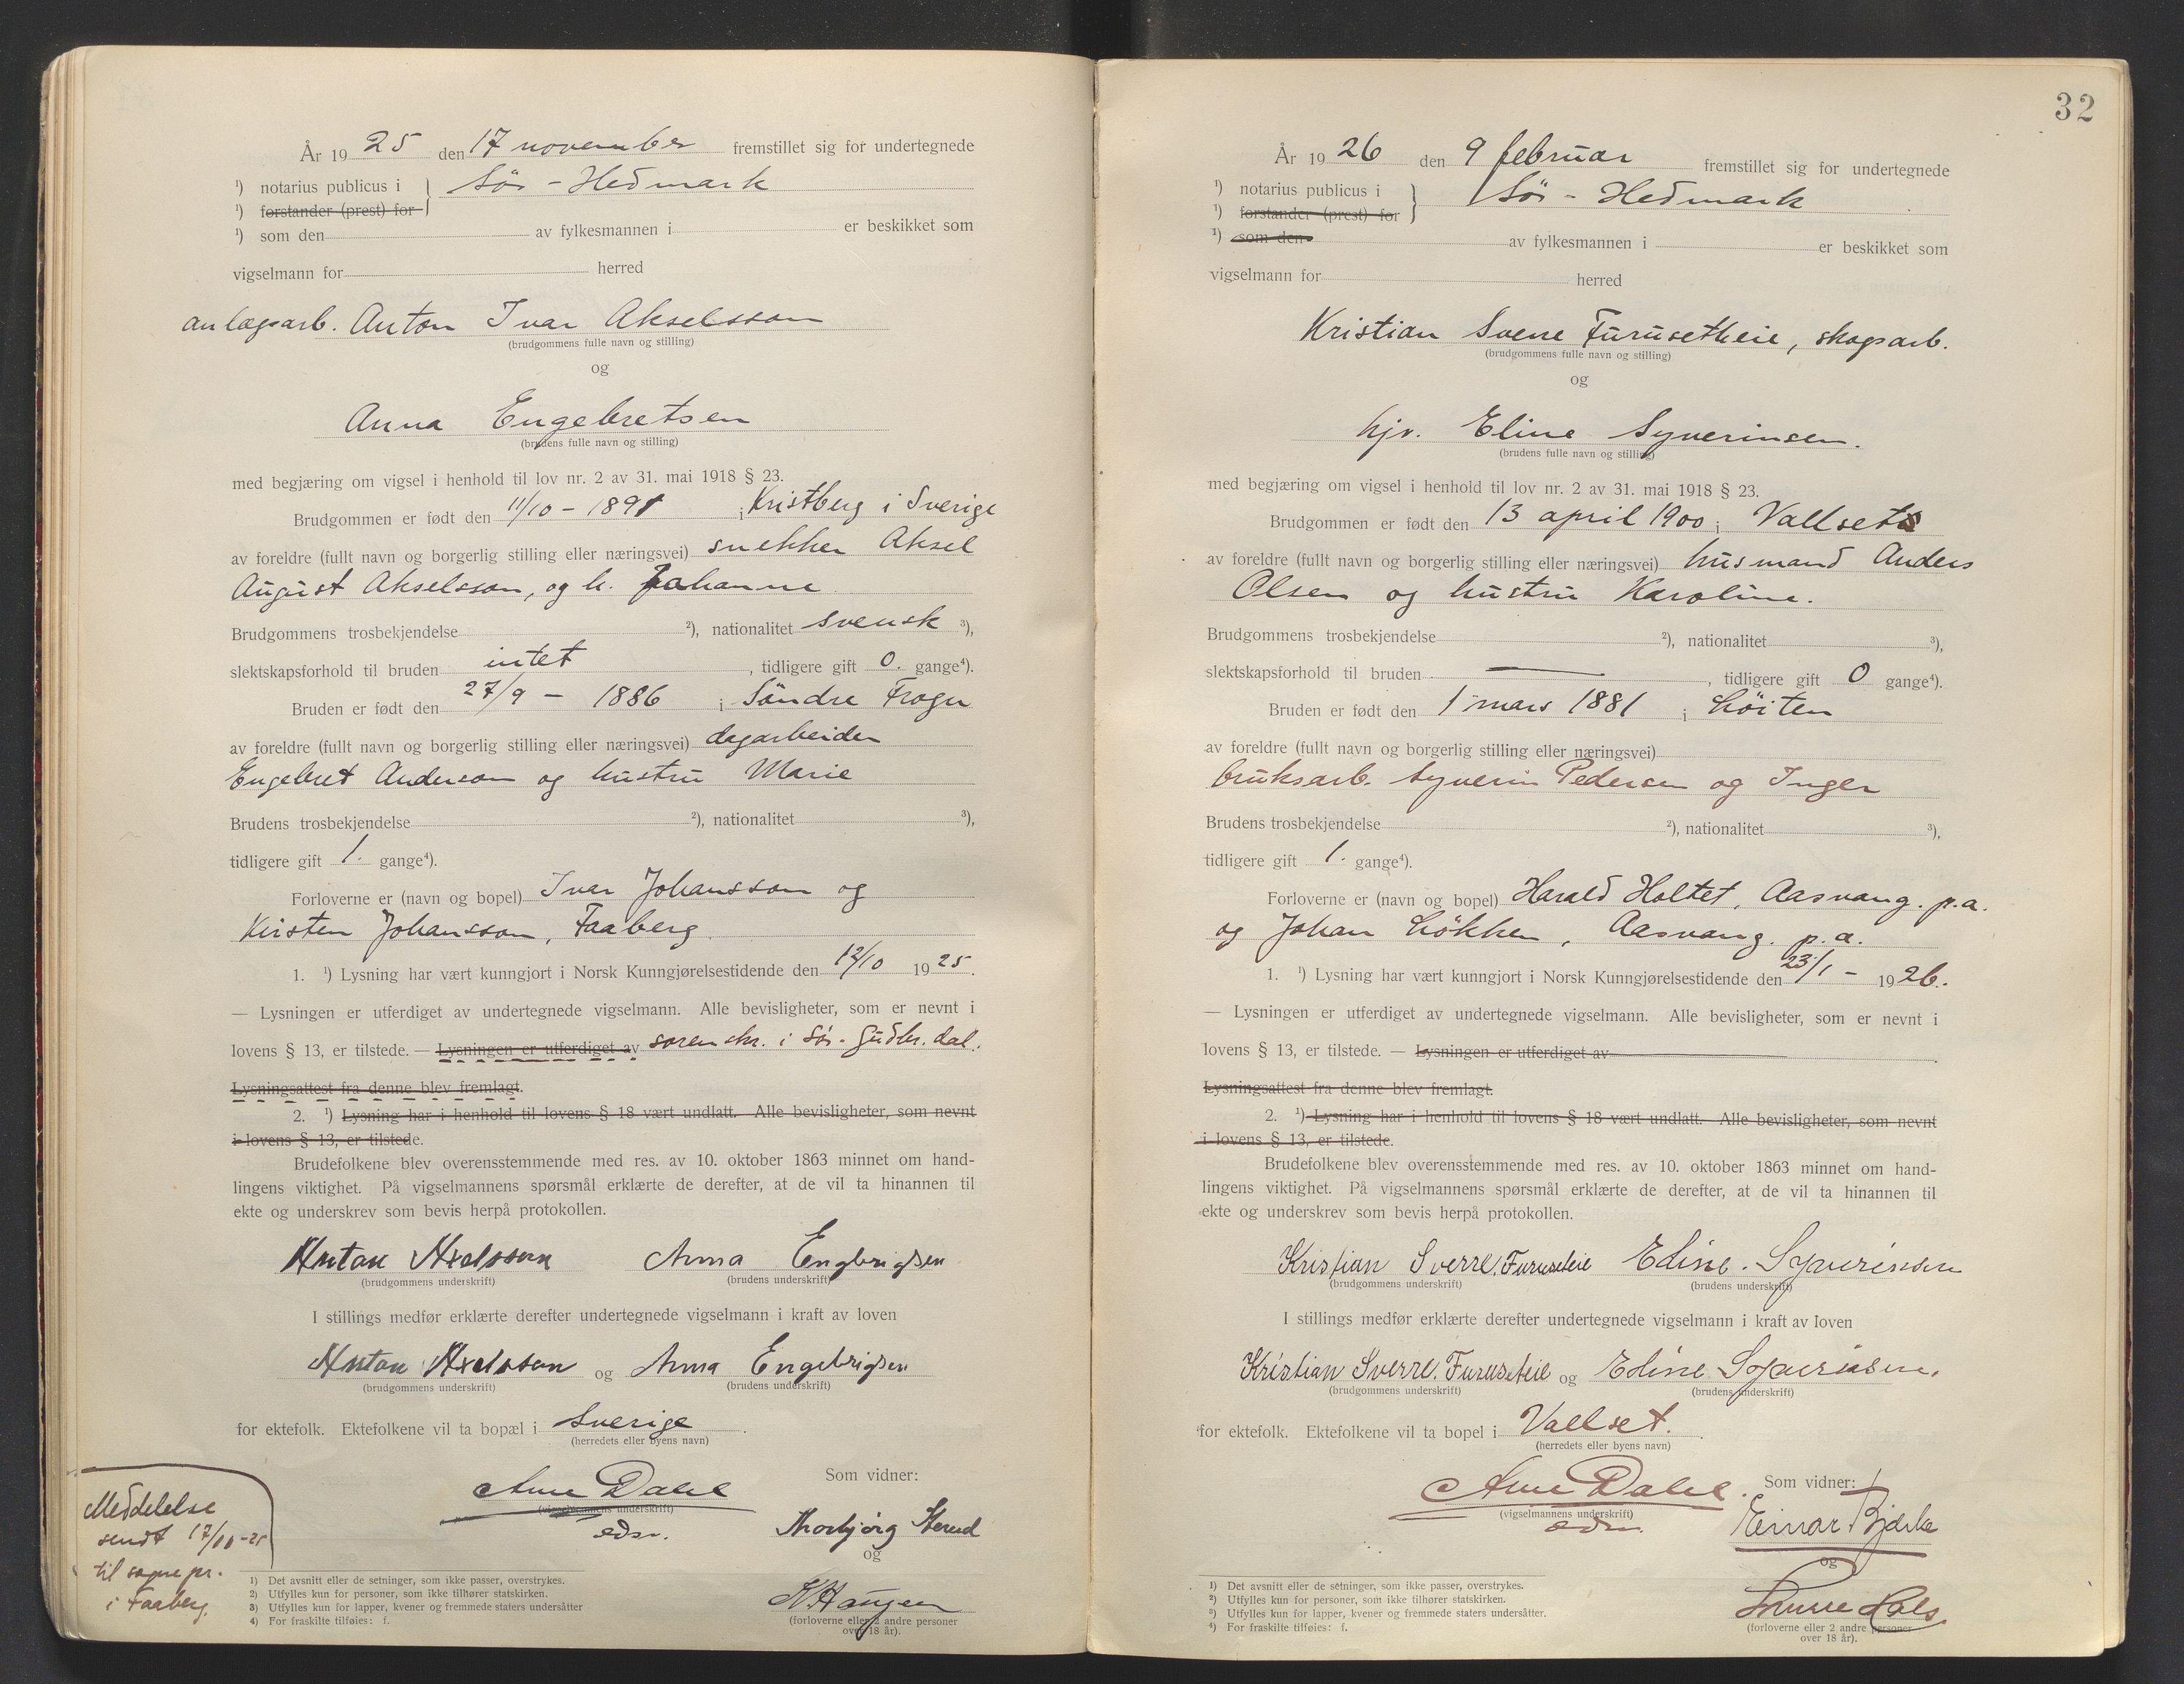 År 19 25 den 17 november fremstillet sig for undertegnede
¹) notarius publicus i } Sör - Hedmark
¹) forstander (prest) for
¹) som den av fylkesmannen i er beskikket som
vigselmann for herred
anlægsarb. Anton Ivar Akselsson
(brudgommens fulle navn og stilling)
og
Anna Engebretsen
(brudens fulle navn og stilling)
med begjæring om vigsel i henhold til lov nr. 2 av 31. mai 1918 § 23.
Brudgommen er født den 11/10 - 1891 i Kristberg i Sverige
av foreldre (fullt navn og borgerlig stilling eller næringsvei) snekker Aksel
August Akselsson, og h. Johanne
Brudgommens trosbekjendelse ²), nationalitet svensk ³),
slektskapsforhold til bruden intet , tidligere gift 0. gange⁴).
Bruden er født den 27/9 - 1886 i Söndre Frogn
av foreldre (fullt navn og borgerlig stilling eller næringsvei) dagarbeider
Engebret Anderson og hustru Marie
Brudens trosbekjendelse ²), nationalitet ³),
tidligere gift 1. gange⁴).
Forloverne er (navn og bopel) Ivar Johansson og
Kirsten Johansson, Faaberg
1. ¹) Lysning har vært kunngjort i Norsk Kunngjørelsestidende den 12/10 19 25.
— Lysningen er utferdiget av undertegnede vigselmann. Alle bevisligheter, som er nevnt i
lovens § 13, er tilstede. — Lysningen er utferdiget av sorenskr. i Sör-Gudbr.dal.
Lysningsattest fra denne blev fremlagt.
2. ¹) Lysning har i henhold til lovens § 18 vært undlatt. Alle bevisligheter, som nevnt
i lovens § 13, er tilstede.
Brudefolkene blev overensstemmende med res. av 10. oktober 1863 minnet om hand-
lingens viktighet. På vigselmannens spørsmål erklærte de derefter, at de vil ta hinannen til
ekte og underskrev som bevis herpå protokollen.
Anton Axelsson Anna Engbrigsen
(brudgommens underskrift) (brudens underskrift)
I stillings medfør erklærte derefter undertegnede vigselmann i kraft av loven
Anton Axelsson og Anna Engebrigsen
(brudgommens underskrift) (brudens underskrift)
for ektefolk. Ektefolkene vil ta bopæl i Sverige.
(herredets eller byens navn)
Arne Dahl Som vidner:
(vigselmannens underskrift)
edsv. Thorbjörg Sterud
og
N. Haugen
(forloverne eller 2 andre personer
over 18 år).
Meddelelse
sendt 17/11-25
til sognepr.
i Faaberg.
1) Det avsnitt eller de setninger, som ikke passer, overstrykes.
2) Utfylles kun for personer, som ikke tilhører statskirken.
3) Utfylles kun for lapper, kvener og fremmede staters undersåtter
4) For fraskilte tilføies: f.
32
År 19 26 den 9 februar fremstillet sig for undertegnede
¹) notarius publicus i } Sör - Hedmark
¹) forstander (prest) for
¹) som den av fylkesmannen i er beskikket som
vigselmann for herred
Kristian Sverre Furusetheie, skogsarb.
(brudgommens fulle navn og stilling)
og
hjv. Eline Syverinsen.
(brudens fulle navn og stilling)
med begjæring om vigsel i henhold til lov nr. 2 av 31. mai 1918 § 23.
Brudgommen er født den 13 april 1900 i Vallset
av foreldre (fullt navn og borgerlig stilling eller næringsvei) husmand Anders
Olsen og hustru Karoline.
Brudgommens trosbekjendelse ²), nationalitet ³),
slektskapsforhold til bruden — , tidligere gift 0 gange⁴).
Bruden er født den 1 mars 1881 i Löiten
av foreldre (fullt navn og borgerlig stilling eller næringsvei)
bruksarb. Syverin Pedersen og Inger
Brudens trosbekjendelse ²), nationalitet ³),
tidligere gift 1. gange⁴).
Forloverne er (navn og bopel) Harald Holtet, Aasvang. p.a.
og Johan Lökken, Aasvang. p.a.
1. ¹) Lysning har vært kunngjort i Norsk Kunngjørelsestidende den 23/1 - 19 26.
— Lysningen er utferdiget av undertegnede vigselmann. Alle bevisligheter, som er nevnt i
lovens § 13, er tilstede. — Lysningen er utferdiget av
Lysningsattest fra denne blev fremlagt.
2. ¹) Lysning har i henhold til lovens § 18 vært undlatt. Alle bevisligheter, som nevnt
i lovens § 13, er tilstede.
Brudefolkene blev overensstemmende med res. av 10. oktober 1863 minnet om hand-
lingens viktighet. På vigselmannens spørsmål erklærte de derefter, at de vil ta hinannen til
ekte og underskrev som bevis herpå protokollen.
Kristian Sverre. Furuseteie Eline. Syverinsen
(brudgommens underskrift) (brudens underskrift)
I stillings medfør erklærte derefter undertegnede vigselmann i kraft av loven
Kristian Sverre. Furuseteie og Eline Syverinsen.
(brudgommens underskrift) (brudens underskrift)
for ektefolk. Ektefolkene vil ta bopel i Vallset.
(herredets eller byens navn)
Arne Dahl. Som vidner:
(vigselmannens underskrift)
edsv. Einar Bjerke
og
(forloverne eller 2 andre personer
over 18 år).
1) Det avsnitt eller de setninger, som ikke passer, overstrykes.
2) Utfylles kun for personer, som ikke tilhører statskirken.
3) Utfylles kun for lapper, kvener og fremmede staters undersåtter.
4) For fraskilte tilføies: f.